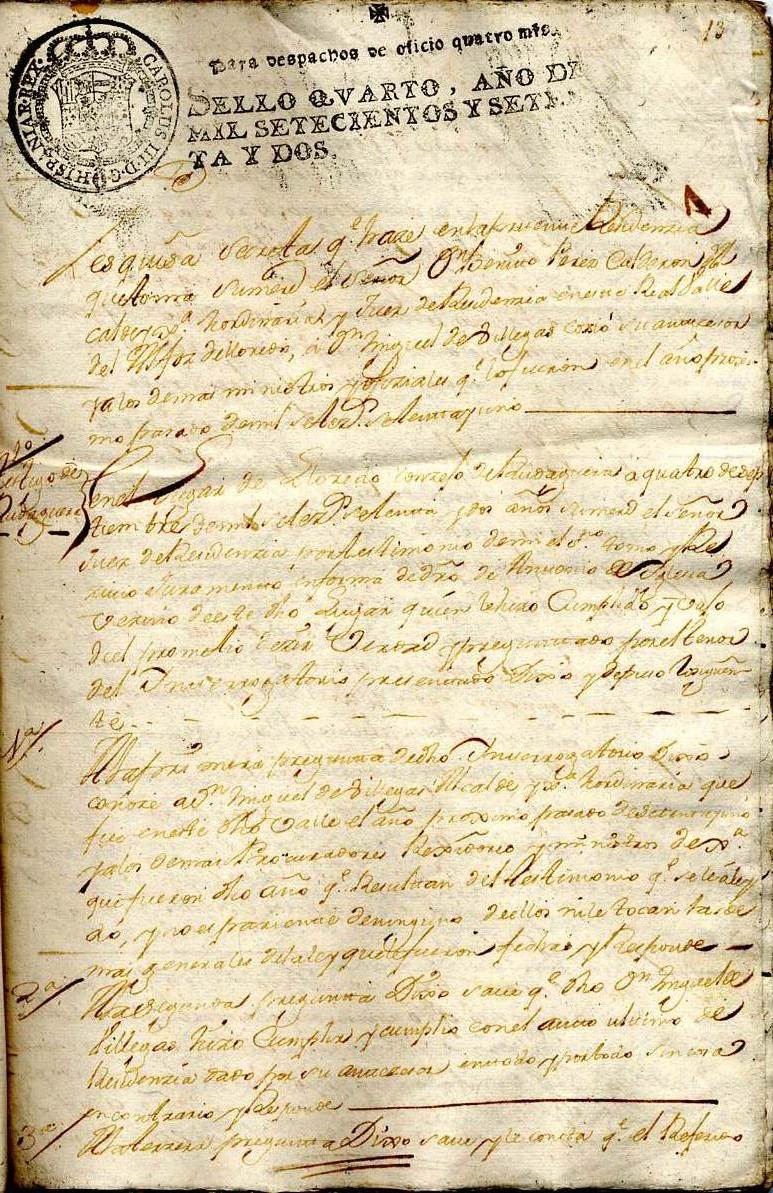 13
Para despachos de oficio quatro mrs.
SELLO QVARTO, AÑO DE
MIL SETECIENTOS Y SETEN
TA Y DOS.
CAROLUS III D G HISPANIAR REX
1
Pesquisa secreta q.e haze en la presente Residenzia
que toma su merd el Señor Dn Perez Calderon
Hordinaria y Juez de Residenzia en este Real Valle
de à Dn Miguel de Villegas su anttezesor
y a los demas ministros y ofiziales q.e lo fueron en el año proxi
mo pasado de mil setezs settenta y uno
testigo de
Rudaguera
En el Lugar de Lloredo Conzejo de Rudaguera à quatro de sep
tiembre de mil setezs settenta y dos años su merd el Señor
Juez de Residenzia por testimonio de mi el sno tomo y Re
zivio Juramento en forma de dro de Antonio
Vezino de este dho Lugar quien lo hizo Cumplido y vajo
de el prometio dezir Verdad y preguntado por el tenor
del Interrogatorio presentado Dixo y depuso lo siguien
te
1a
A la primera pregunta de dho Interrogatorio Dixo
conoze a Dn Miguel de Villegas Alcalde Hordinario que
fue en este dho Valle el año proximo pasado de settenta y uno
y a los demas Procuradores Rexidores y ministros de
que fueron dho año q.e Resultan del testimonio q.e se le á ley
do, y no es pariente de ninguno de ellos ni le tocan las de
mas generales de la ley que le fueron fechas y Responde
2a
A la segunda pregunta Dixo save q.e dho Dn Miguel de
Villegas hizo Cumplir y cumplio con el auto ultimo de
Residenzia dado por su anttezesor en todo y por todo sin cosa
en contrario y Responde
3a
A la terzera pregunta Dixo save y le consta q.e el Referido